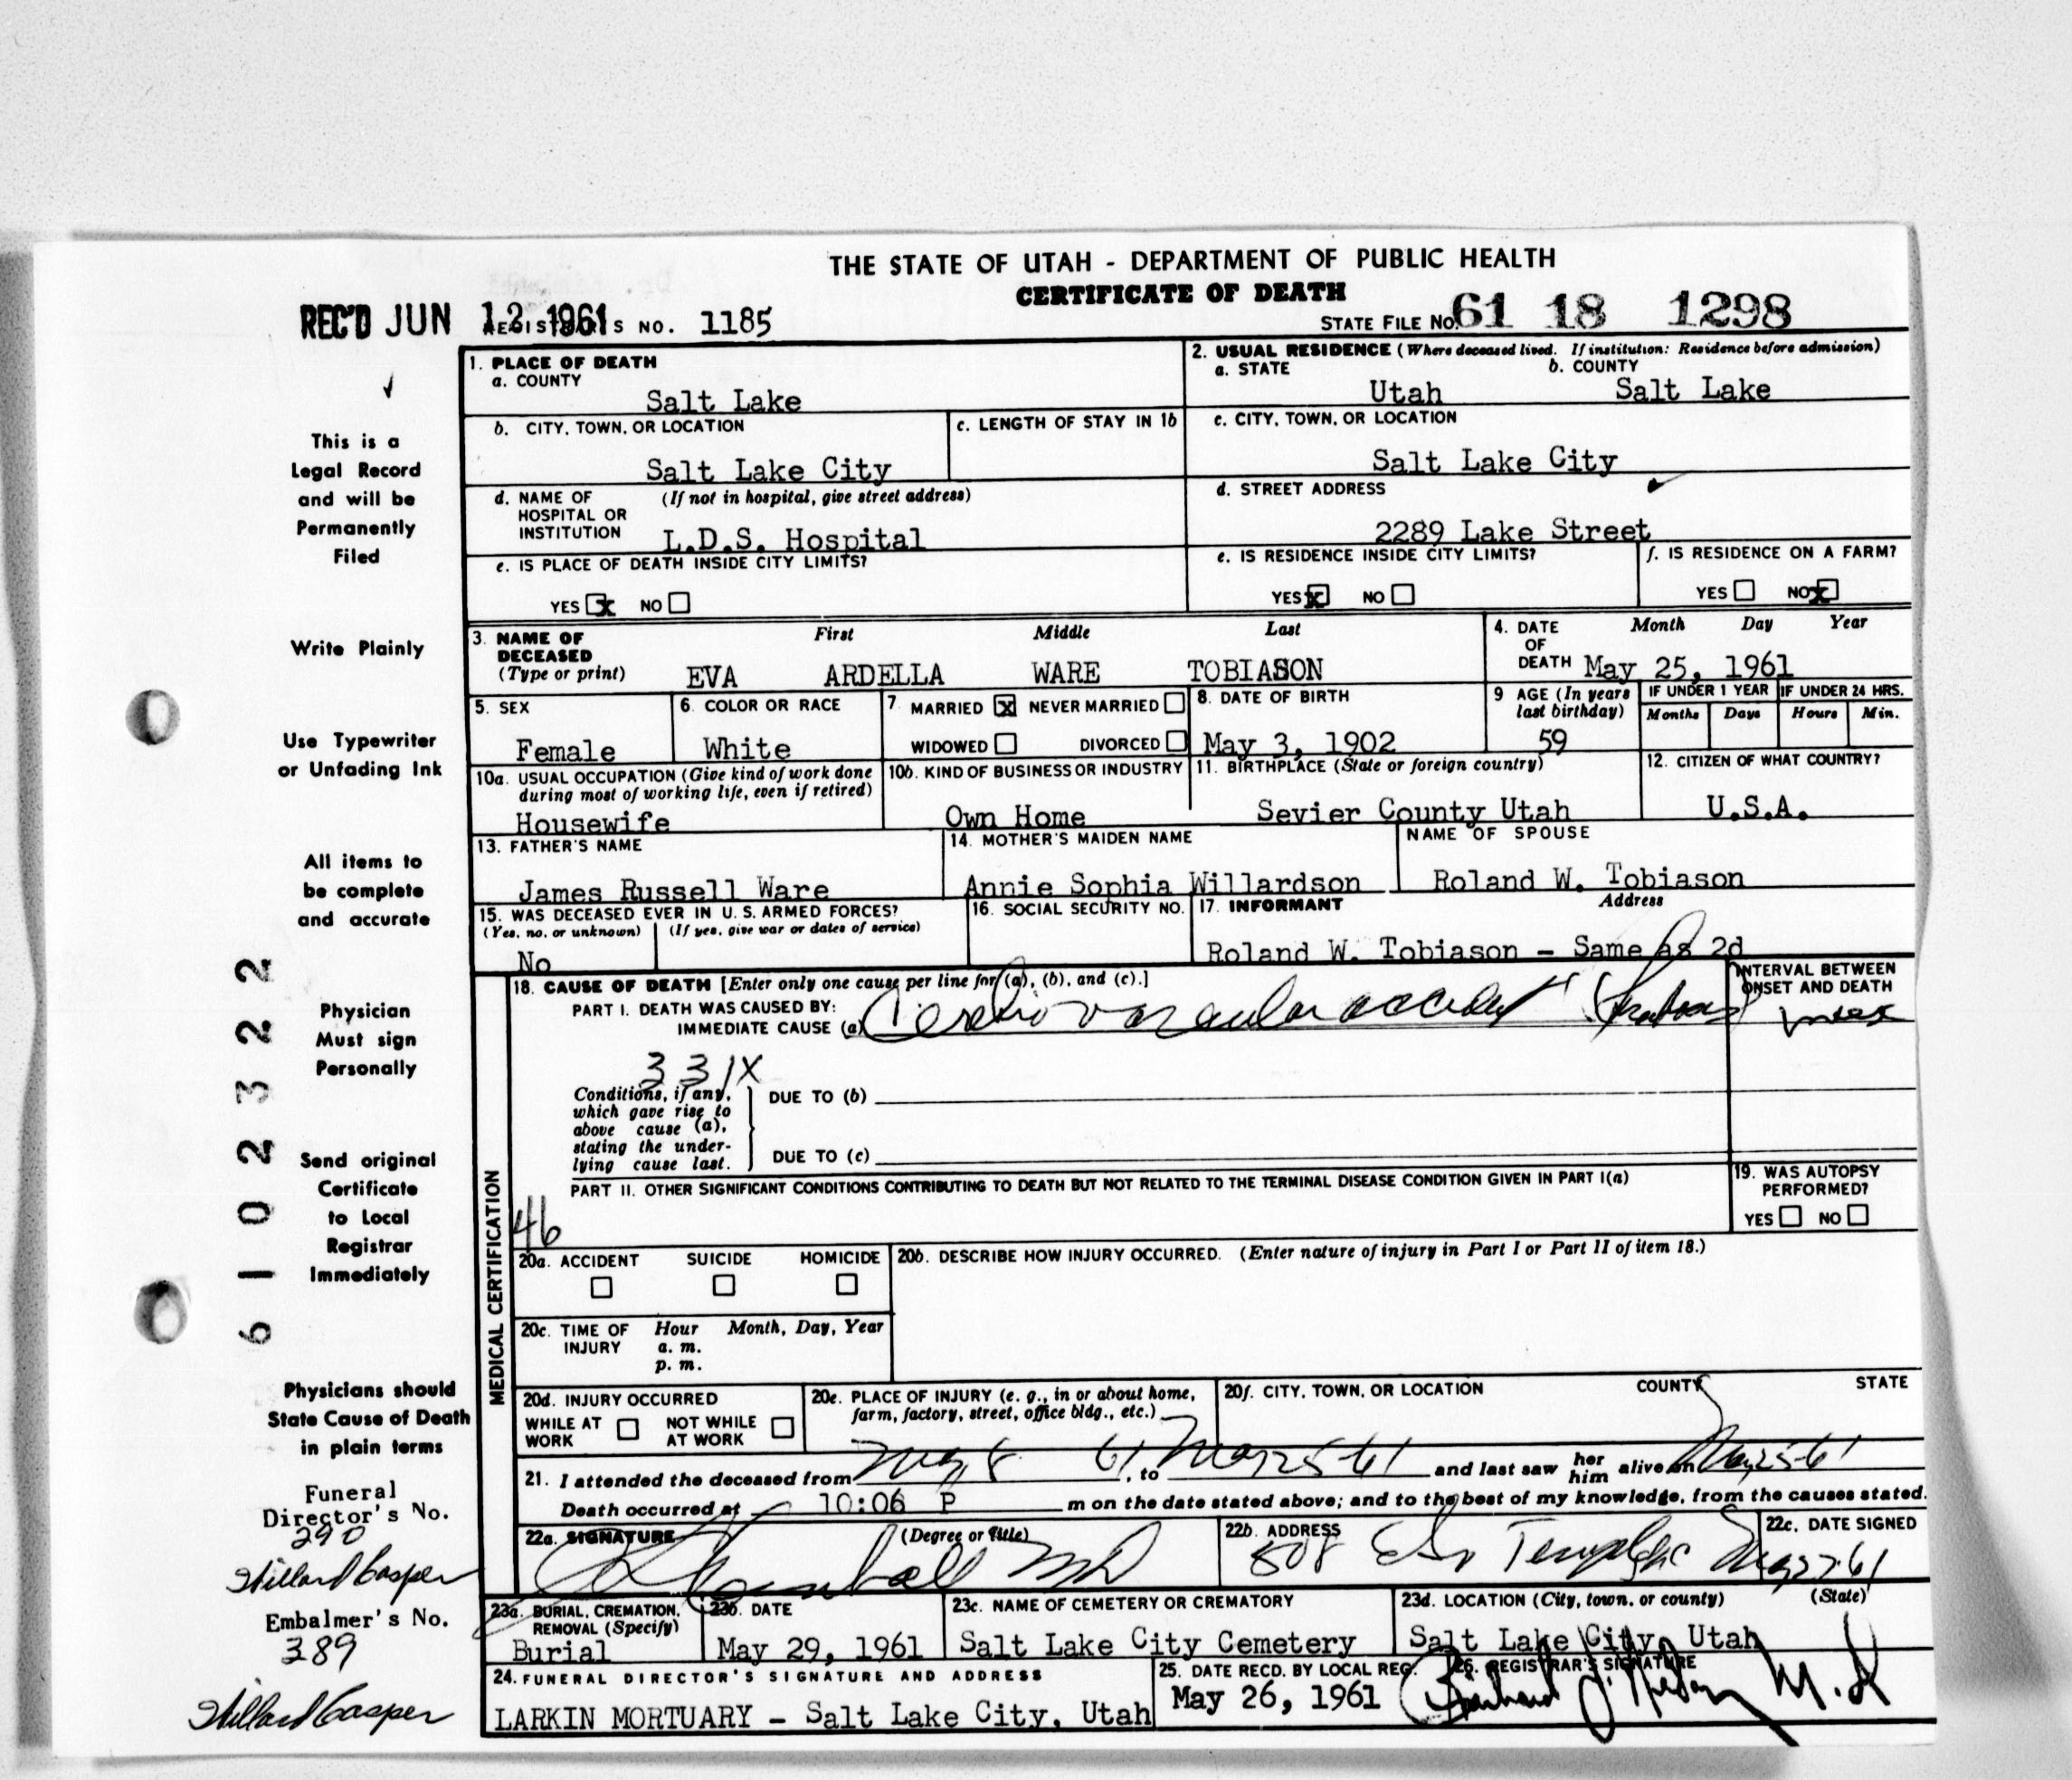 THE STATE OF UTAH - DEPARTMENT OF PUBLIC HEALTH
CERTIFICATE OF DEATH
REC'D JUN 12 1961 REGISTRAR'S NO. 1185
STATE FILE NO. 61 18 1298
1. PLACE OF DEATH
a. COUNTY
Salt Lake
2. USUAL RESIDENCE (Where deceased lived. If institution: Residence before admission)
a. STATE b. COUNTY
Utah Salt Lake
b. CITY, TOWN, OR LOCATION
Salt Lake City
c. LENGTH OF STAY IN 1b
c. CITY, TOWN, OR LOCATION
Salt Lake City
d. NAME OF (If not in hospital, give street address)
HOSPITAL OR
INSTITUTION L.D.S. Hospital
d. STREET ADDRESS
2289 Lake Street
e. IS PLACE OF DEATH INSIDE CITY LIMITS?
YES x NO
e. IS RESIDENCE INSIDE CITY LIMITS?
YES x NO
f. IS RESIDENCE ON A FARM?
YES NO x
3. NAME OF First Middle Last
DECEASED
(Type or print) EVA ARDELLA WARE TOBIASON
4. DATE Month Day Year
OF
DEATH May 25, 1961
5. SEX
Female
6. COLOR OR RACE
White
7. MARRIED x NEVER MARRIED
WIDOWED DIVORCED
8. DATE OF BIRTH
May 3, 1902
9 AGE (In years
last birthday)
59
IF UNDER 1 YEAR IF UNDER 24 HRS.
Months Days Hours Min.
10a. USUAL OCCUPATION (Give kind of work done
during most of working life, even if retired)
Housewife
10b. KIND OF BUSINESS OR INDUSTRY
Own Home
11. BIRTHPLACE (State or foreign country)
Sevier County Utah
12. CITIZEN OF WHAT COUNTRY?
U.S.A.
13. FATHER'S NAME
James Russell Ware
14. MOTHER'S MAIDEN NAME
Annie Sophia Willardson
NAME OF SPOUSE
Roland W. Tobiason
15. WAS DECEASED EVER IN U. S. ARMED FORCES?
(Yes, no, or unknown) (If yes, give war or dates of service)
No
16. SOCIAL SECURITY NO.
17. INFORMANT Address
Roland W. Tobiason - Same as 2d
MEDICAL CERTIFICATION
18. CAUSE OF DEATH [Enter only one cause per line for (a), (b), and (c).]
PART I. DEATH WAS CAUSED BY:
IMMEDIATE CAUSE (a) vascular accident
INTERVAL BETWEEN
ONSET AND DEATH
331X
Conditions, if any,
which gave rise to
above cause (a),
stating the under-
lying cause last.
DUE TO (b)
DUE TO (c)
PART II. OTHER SIGNIFICANT CONDITIONS CONTRIBUTING TO DEATH BUT NOT RELATED TO THE TERMINAL DISEASE CONDITION GIVEN IN PART I(a)
46
19. WAS AUTOPSY
PERFORMED?
YES NO
20a. ACCIDENT SUICIDE HOMICIDE
20b. DESCRIBE HOW INJURY OCCURRED. (Enter nature of injury in Part I or Part II of item 18.)
20c. TIME OF Hour Month, Day, Year
INJURY a. m.
p. m.
20d. INJURY OCCURRED
WHILE AT WORK NOT WHILE AT WORK
20e. PLACE OF INJURY (e. g., in or about home,
farm, factory, street, office bldg., etc.)
20f. CITY, TOWN, OR LOCATION COUNTY STATE
21. I attended the deceased from May 8 61, to May 25-61 and last saw her him alive on May 25-61
Death occurred at 10:06 P m on the date stated above; and to the best of my knowledge, from the causes stated.
22a. SIGNATURE (Degree or title)
Kimball MD
22b. ADDRESS
508 E So Temple
22c. DATE SIGNED
May 27-61
23a. BURIAL, CREMATION,
REMOVAL (Specify)
Burial
23b. DATE
May 29, 1961
23c. NAME OF CEMETERY OR CREMATORY
Salt Lake City Cemetery
23d. LOCATION (City, town, or county) (State)
Salt Lake City, Utah
24. FUNERAL DIRECTOR'S SIGNATURE AND ADDRESS
LARKIN MORTUARY - Salt Lake City, Utah
25. DATE RECD. BY LOCAL REG.
May 26, 1961
26. REGISTRAR'S SIGNATURE
M.D
This is a
Legal Record
and will be
Permanently
Filed
Write Plainly
Use Typewriter
or Unfading Ink
All items to
be complete
and accurate
Physician
Must sign
Personally
Send original
Certificate
to Local
Registrar
Immediately
Physicians should
State Cause of Death
in plain terms
Funeral
Director's No.
290
Willard Casper
Embalmer's No.
389
Willard Casper
61022322